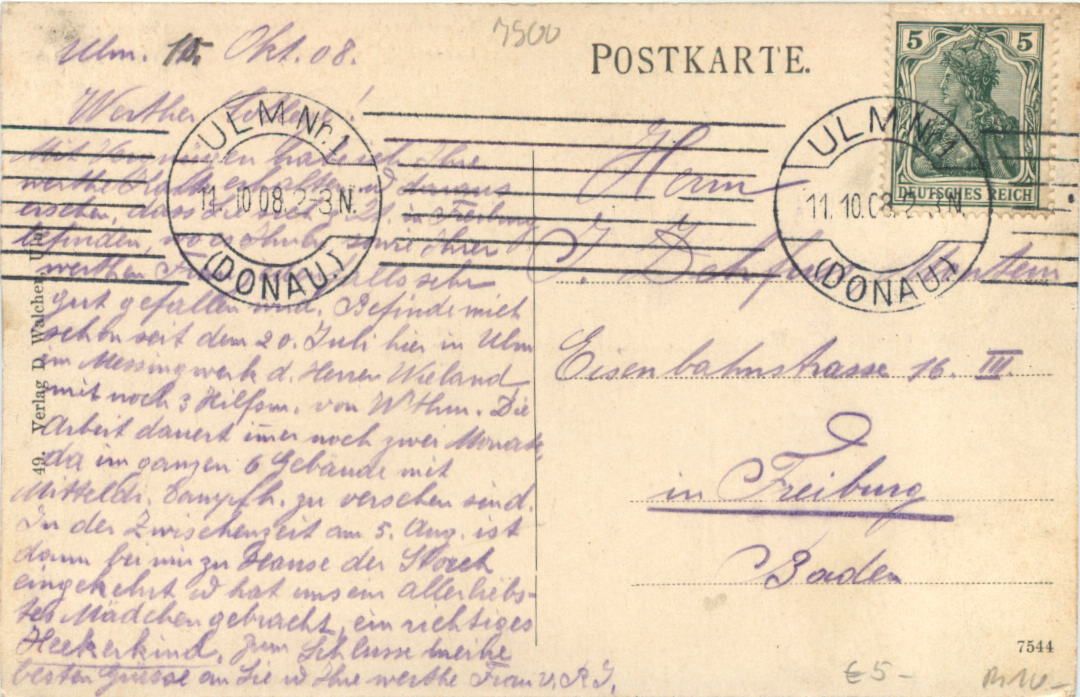 7500
Ulm. 10. Okt. 08.
POSTKARTE.
5 5
DEUTSCHES REICH
ULM Nr. 1
11.10.08. 2-3 N.
(DONAU.)
ULM Nr. 1
11.10.08. 2-3 N.
(DONAU.)
Werther
Mit Vergnügen habe ich Ihre
werthe Karte erhalten und daraus
ersehen, dass Sie sich z. Zt. in Freiburg
befinden, wo es Ihnen, sowie Ihrer
werthen Frau sehr
gut gefallen wird. Befinde mich
schon seit dem 20. Juli hier in Ulm
im Messingwerk d. Herren Wieland
mit noch 3 Hilfsm. von W'thm. Die
Arbeit dauert im̅er noch zwei Monate,
da im ganzen 6 Gebäude mit
Mitteldr. Dampfh. zu versehen sind.
In der Zwischenzeit am 5. Aug. ist
dann bei mir zu Hause der Storch
eingekehrt u hat uns ein allerliebs-
tes Mädchen gebracht, ein richtiges
Heckerkind. Zum Schlusse meine
besten Grüsse an Sie u Ihre werthe Frau v.
Herrn
J.
Eisenbahnstrasse 16. III.
in Freiburg
Baden
49. Verlag D. Walcher, Ulm
7544
€5-